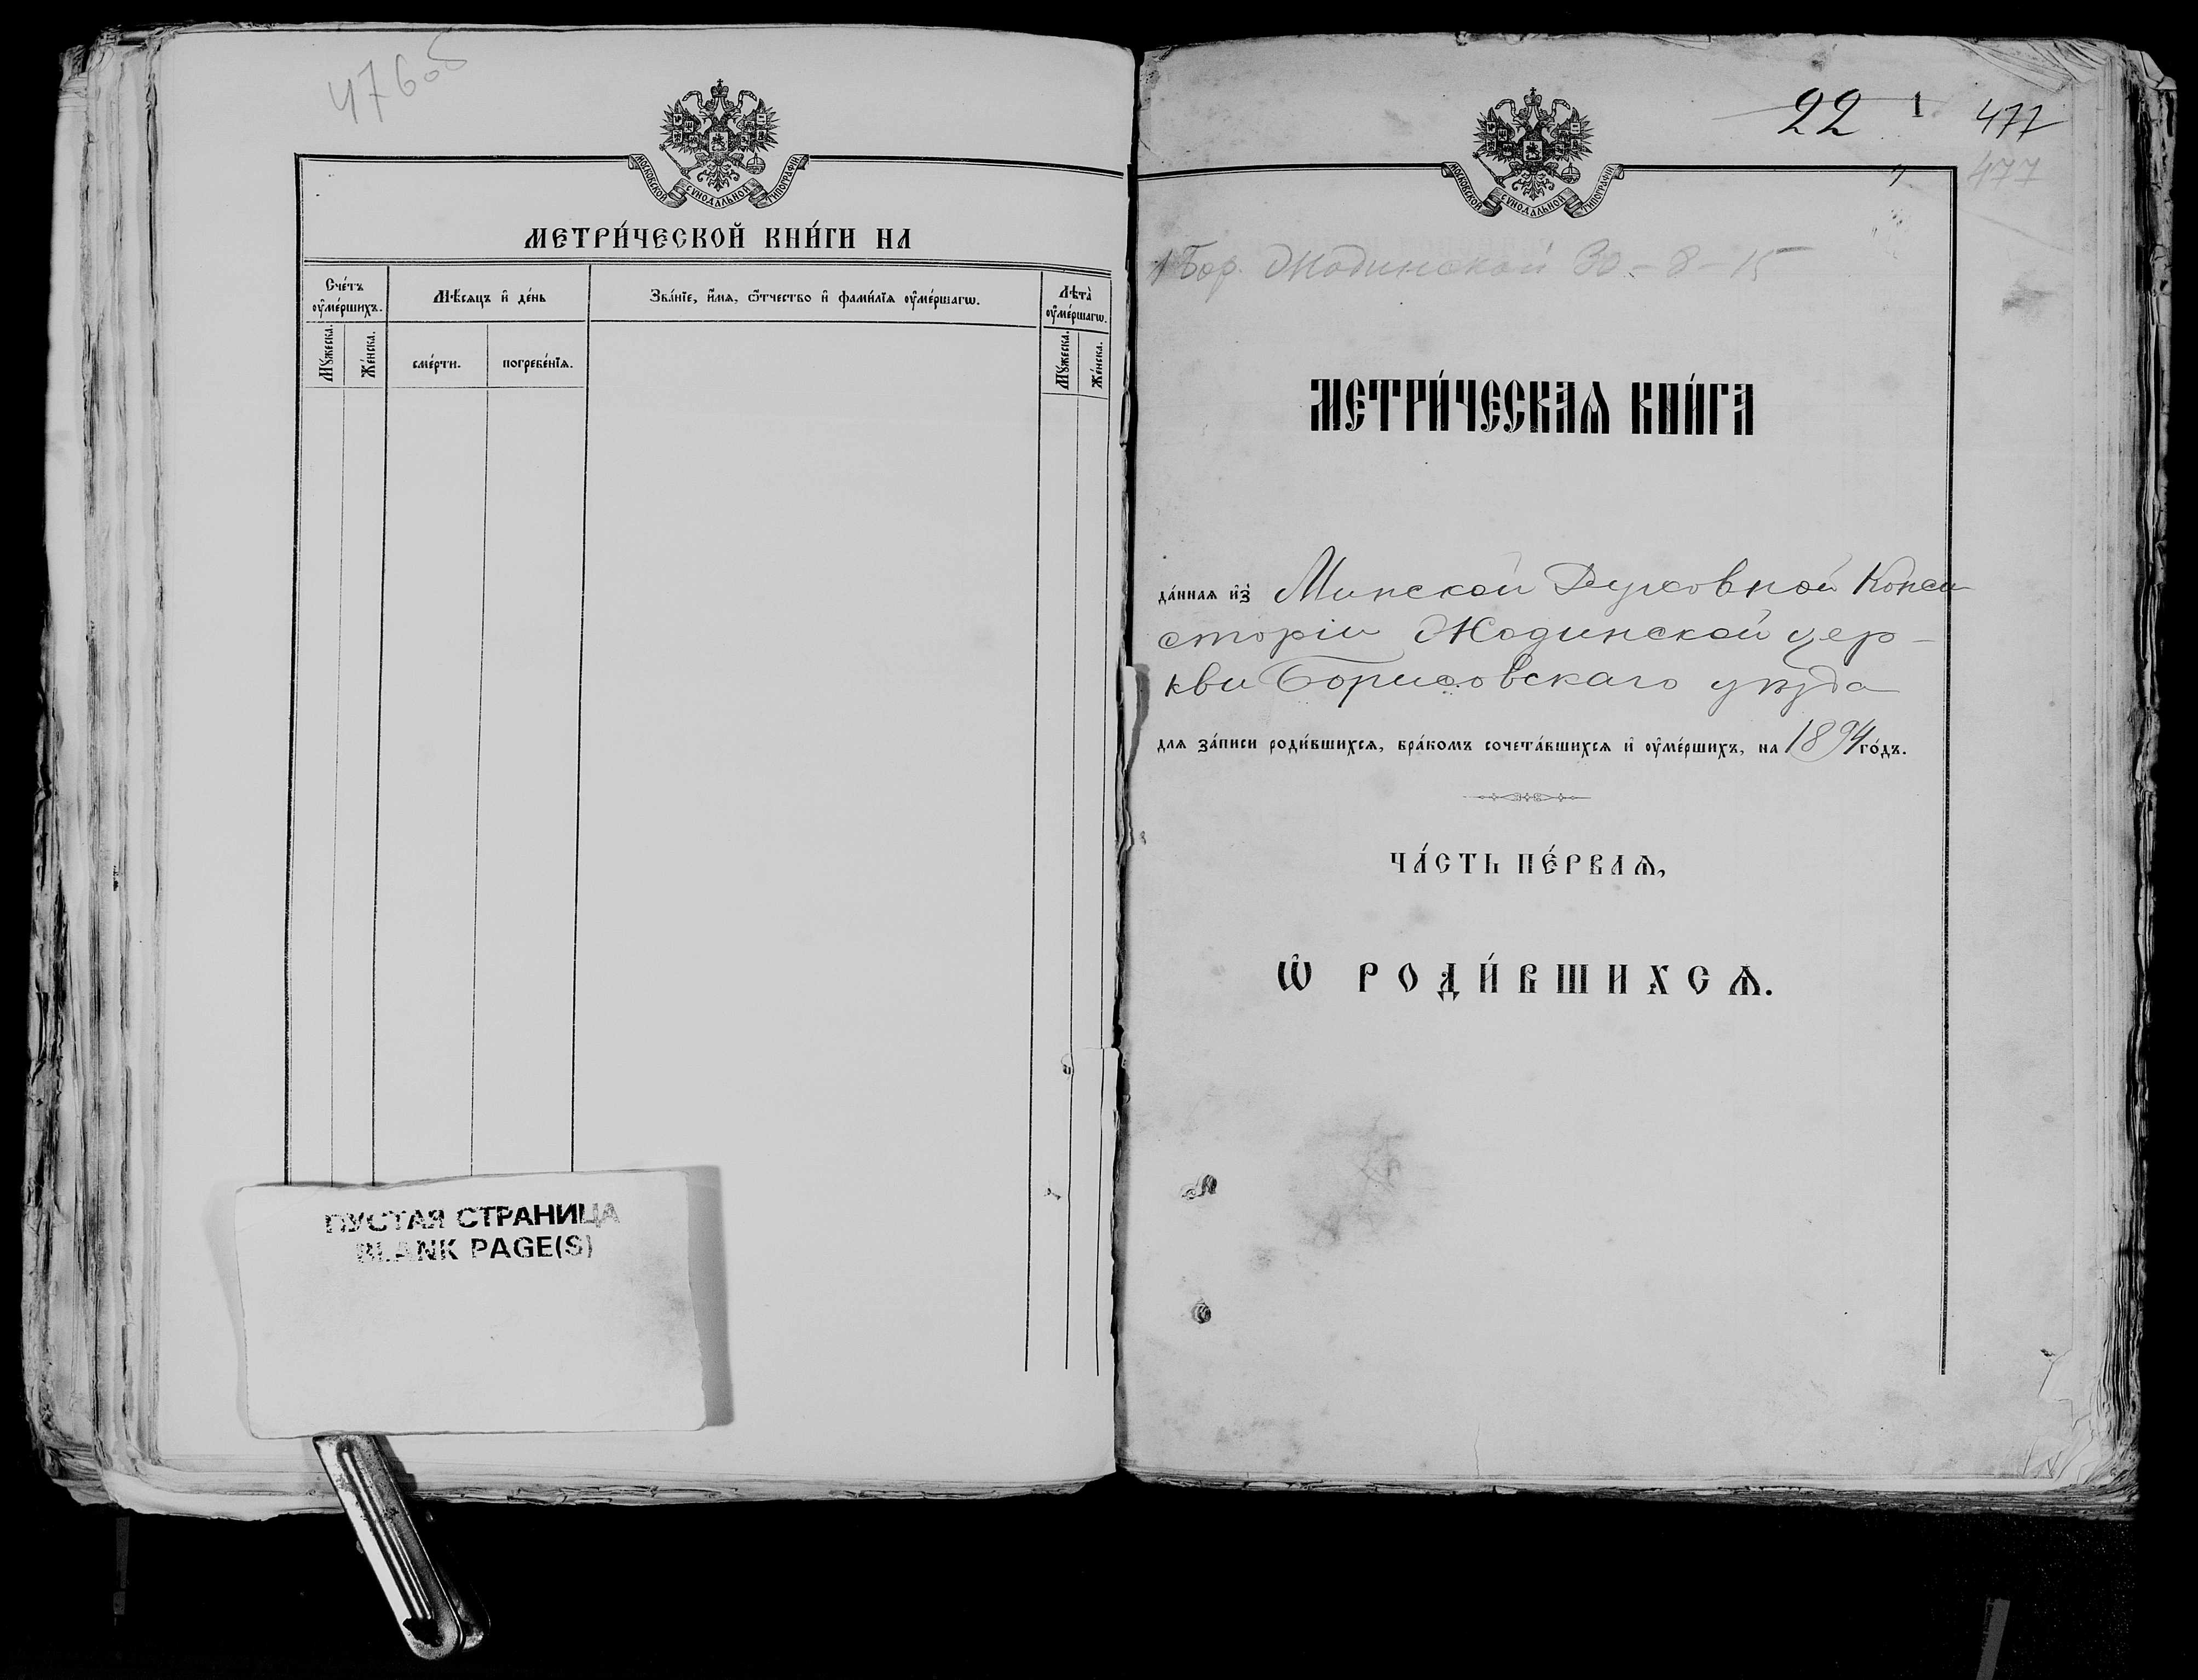 476об
МОСКОВСКОЙ СѴНОДАЛЬНОЙ ТИПОГРАФІИ
МЕТРИ́ЧЕСКОЙ КНИ́ГИ НА
Сче́тъ ᲂу҆ме́ршихъ.
Мѣ́сяцъ и҆ де́нь
Зва́нїе, и҆́мѧ, ѻ҆́тчество и҆ фами́лїѧ ᲂу҆ме́ршагѡ.
Лѣта̀ ᲂу҆ме́ршагѡ.
Мꙋ́жеска.
Же́нска.
сме́рти.
погребе́нїѧ.
Мꙋ́жеска.
Же́нска.
ПУСТАЯ СТРАНИЦА
BLANK PAGE(S)
22 1 477
477
МОСКОВСКОЙ СѴНОДАЛЬНОЙ ТИПОГРАФІИ
1 Бор. Жодинской 30-8-15
МЕТРИ́ЧЕСКАѦ КНИ́ГА
да́нная и҆з̾ Минской Духовной Конси
сторіи Жодинской цер-
кви Борисовскаго уѣзда
для за́писи роди́вшихсѧ, бра́комъ сочета́вшихсѧ и҆ ᲂу҆ме́ршихъ, на 1894 го́дъ.
ЧА́СТЬ ПЕ́РВАѦ,
Ѽ РОДИ́ВШИХСѦ.